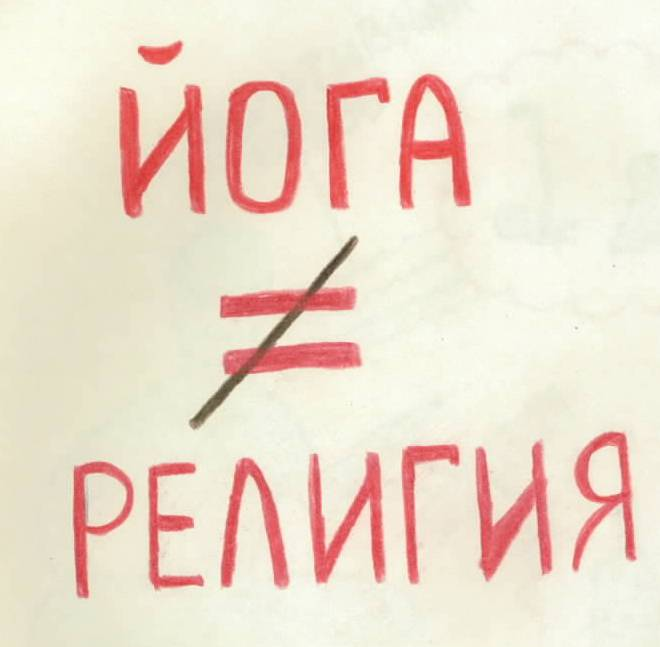 ЙОГА
≠
РЕЛИГИЯ